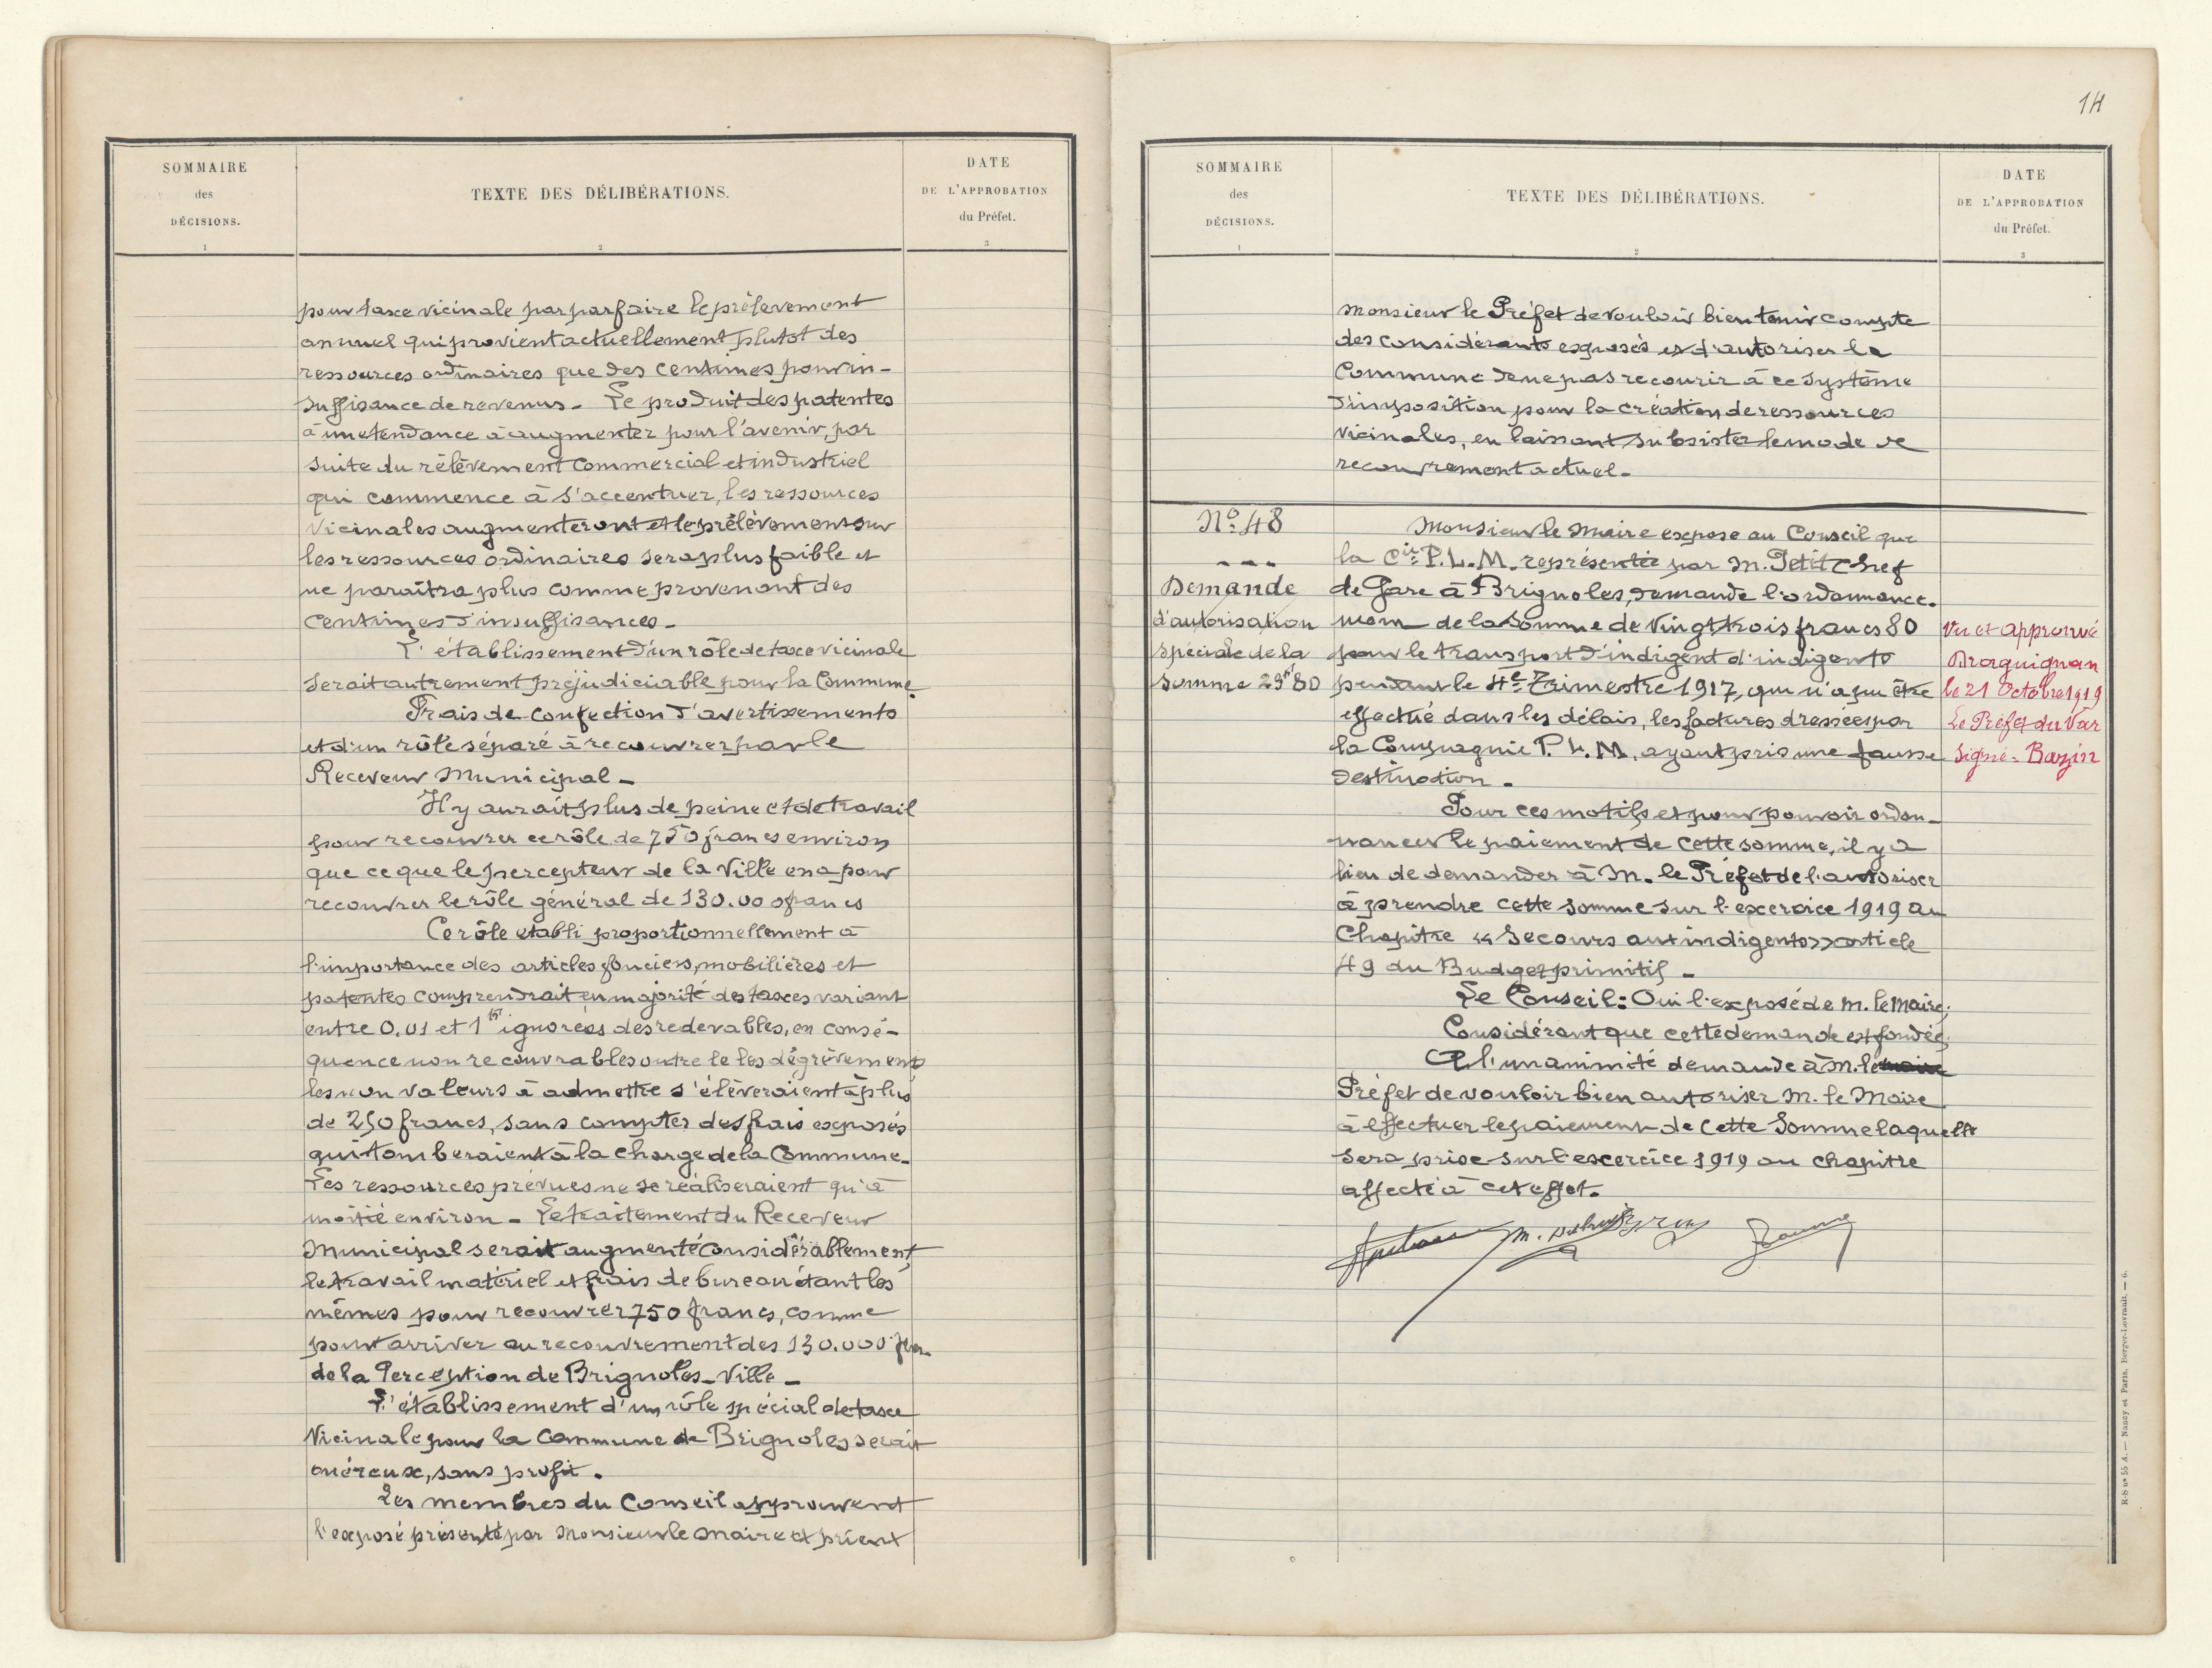 SOMMAIRE
des
DÉCISIONS.
1
TEXTE DES DÉLIBÉRATIONS.
2
DATE
DE L'APPROBATION
du Préfet.
3
pour taxe vicinale par parfaire le prélevement
annuel qui provient actuellement plutot des
ressources ordinaires que des centimes pour in-
suffisance de revenus - Le produit des patentes
à une tendance à augmenter pour l'avenir, par
suite du rélévement commercial et industriel
qui commence à s'accentuer, les ressources
vicinales augmenteront et le prélévement sur
les ressources ordinaires sera plus faible et
ne paraîtra plus comme provenant des
centimes d'insuffisances -
L'établissement d'un rôle de taxe vicinale
serait autrement préjudiciable pour la Commune.
Frais de confection d'avertissements
et d'un rôle séparé à recouvrer par le
Receveur Municipal -
Il y aurait plus de peine et de travail
pour recouvrer ce rôle de 750 francs environ
que ce que le percepteur de la Ville en a pour
recouvrer le rôle général de 130.000 francs
Ce rôle etabli proportionnellement à
l'importance des articles fonciers, mobilières et
patentes comprendrait en majorité des taxes variant
entre 0,01 et 1 fr ignorées des redevables, en consé-
quence non recouvrables outre le les dégrèvements
les non valeurs à admettre s'élèveraient à plus
de 250 francs, sans compter des frais exposés
qui tomberaient à la charge de la Commune.
Les ressources prévues ne se réaliseraient qu'à
moitié environ - Le traitement du Receveur
Municipal serait augmenté considérablement,
le travail matériel et frais de bureau étant les
mêmes pour recouvrer 750 francs, comme
pour arriver au recouvrement des 130.000 fr
de la Perception de Brignoles-Ville -
L'établissement d'un rôle spécial de taxe
Vicinale pour la Commune de Brignoles serait
onéreuse, sans profit.
Les membres du Conseil approuvent
l'exposé présenté par Monsieur le Maire et prient
14
SOMMAIRE
des
DÉCISIONS.
1
TEXTE DES DÉLIBÉRATIONS.
2
DATE
DE L'APPROBATION
du Préfet.
3
Monsieur le Préfet de vouloir bien tenir compte
des considérants exposés et d'autoriser la
Commune de ne pas recourir à ce système
d'imposition pour la création de ressources
vicinales, en laissant subsister le mode de
recouvrement actuel.
N° 48
- - -
Demande
d'autorisation
spéciale de la
somme 23f 80
Monsieur le Maire expose au Conseil que
la Cie P.L.M. représentée par M. Petit Chef
de Gare à Brignoles, demande l'ordonnance.
mem de la Somme de Vingt trois francs 80
pour le transport d'indigent d'indigents
pendant le 4e Trimestre 1917, qui n'a pu être
effectué dans les délais, les factures dressées par
la Compagnie P.L.M. ayant pris une fausse
destination -
Pour ces motifs et pour pouvoir ordon-
nancer le paiement de cette somme, il y a
lieu de demander à M. le Préfet de l'autoriser
à prendre cette somme sur l'excercice 1919 au
Chapitre « Secours aux indigents » article
49 du Budget primitif -
Le Conseil: Oui l'exposé de M. le Maire;
Considérant que cette demande est fondée;
A l'unanimité demande à M. le maire
Préfet de vouloir bien autoriser M. le Maire
à effectuer le paiement de cette somme laquelle
sera prise sur l'excercice 1919 au chapitre
affecté à cet effet.
Vu et approuvé
Draguignan
le 21 Octobre 1919
Le Préfet du Var
Signé - Bazin
R-S n° 55 A. — Nancy et Paris, Berger-Levrault. — 6.